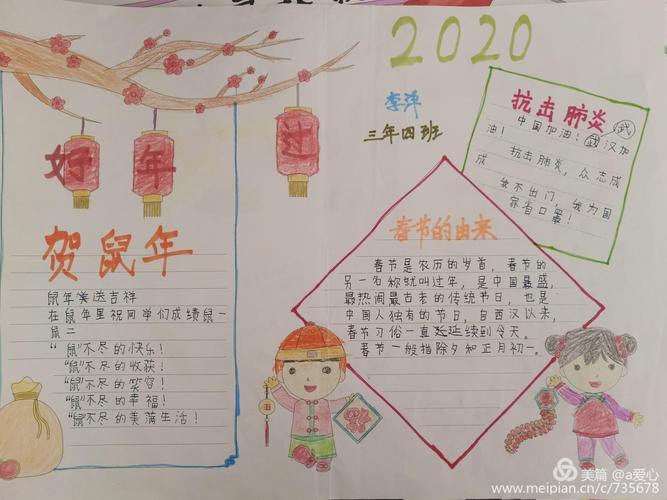 2020
李萍
三年四班
好年过
贺鼠年
鼠年来送吉祥
在鼠年里祝同学们成绩鼠一
鼠二
“鼠”不尽的快乐！
“鼠”不尽的收获！
“鼠”不尽的笑容！
“鼠”不尽的幸福！
“鼠”不尽的美满生活！
春节的由来
春节是农历的岁首，春节的
另一名称就叫过年，是中国最盛，
最热闹最古老的传统节日，也是
中国人独有的节日，自西汉以来，
春节习俗一直延延续到今天。
春节一般指除夕和正月初一。
抗击肺炎
武
中国加油！武汉加
油！
抗击肺炎，众志成
成
我不出门，我为国
家省口罩！
美篇 @a爱心
www.meipian.cn/c/735678